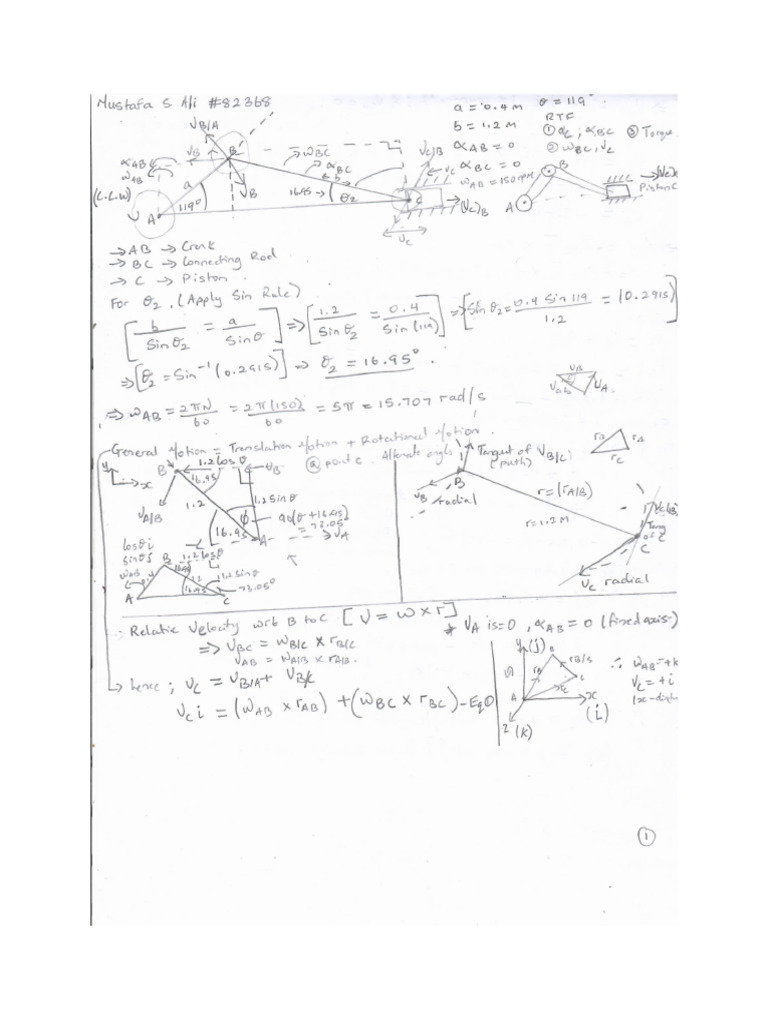 Mustafa S Ali #82368
a = 0.4 m θ = 119°
b = 1.2 m RTF
① αc ; αBC ③ Torque
αAB = 0 ② ωBC, Vc
αBC = 0
ωAB = 150 rpm
VB/A
VB B
αAB
ωAB
(C.C.W)
a
119°
A
VB
ωBC
αBC
b
16.95 → θ2
C
Vc/B
Vc
B
A
Piston C
→ AB → Crank
→ BC → Connecting Rod
→ C → Piston
For θ2, (Apply Sin Rule)
[b/Sinθ2 = a/Sinθ] ⇒ [1.2/Sinθ2 = 0.4/Sin(119)] ⇒ [Sinθ2 = 0.4 Sin 119/1.2 = (0.2915)
⇒ [θ2 = Sin⁻¹(0.2915)] ⇒ θ2 = 16.95°.
⇒ ωAB = 2πN/60 = 2π(150)/60 = 5π = 15.707 rad/s
General Motion = Translation Motion + Rotational Motion.
@ point C. Alternate angle
y
x
B 1.2 Cosθ
16.95
VB
VA/B
1.2
1.2 Sinθ
φ
90(θ+16.95)
= 73.05°
16.95 A VA
Cosθi
Sinθj
B 1.2 Cosθ
1.2 1.2 Sinθ
16.95
73.05°
A C
Tangent of VB/C
(path)
VB radial
B
r = (rA/B)
r = 1.2 M
C
Vc radial
∴ Relatie Velocity wrt B to C [V = ω × r]
⇒ VBC = ωB/C × rB/C
VAB = ωA/B × rA/B.
hence ; Vc = VB/A + VB/C
Vc i = (ωAB × rAB) + (ωBC × rBC) – Eq①
* VA is = 0 , αAB = 0 (fixed axis)
y (j)
B
A
x
(i)
z (k)
∴ ωAB = +k
Vc = + i
①